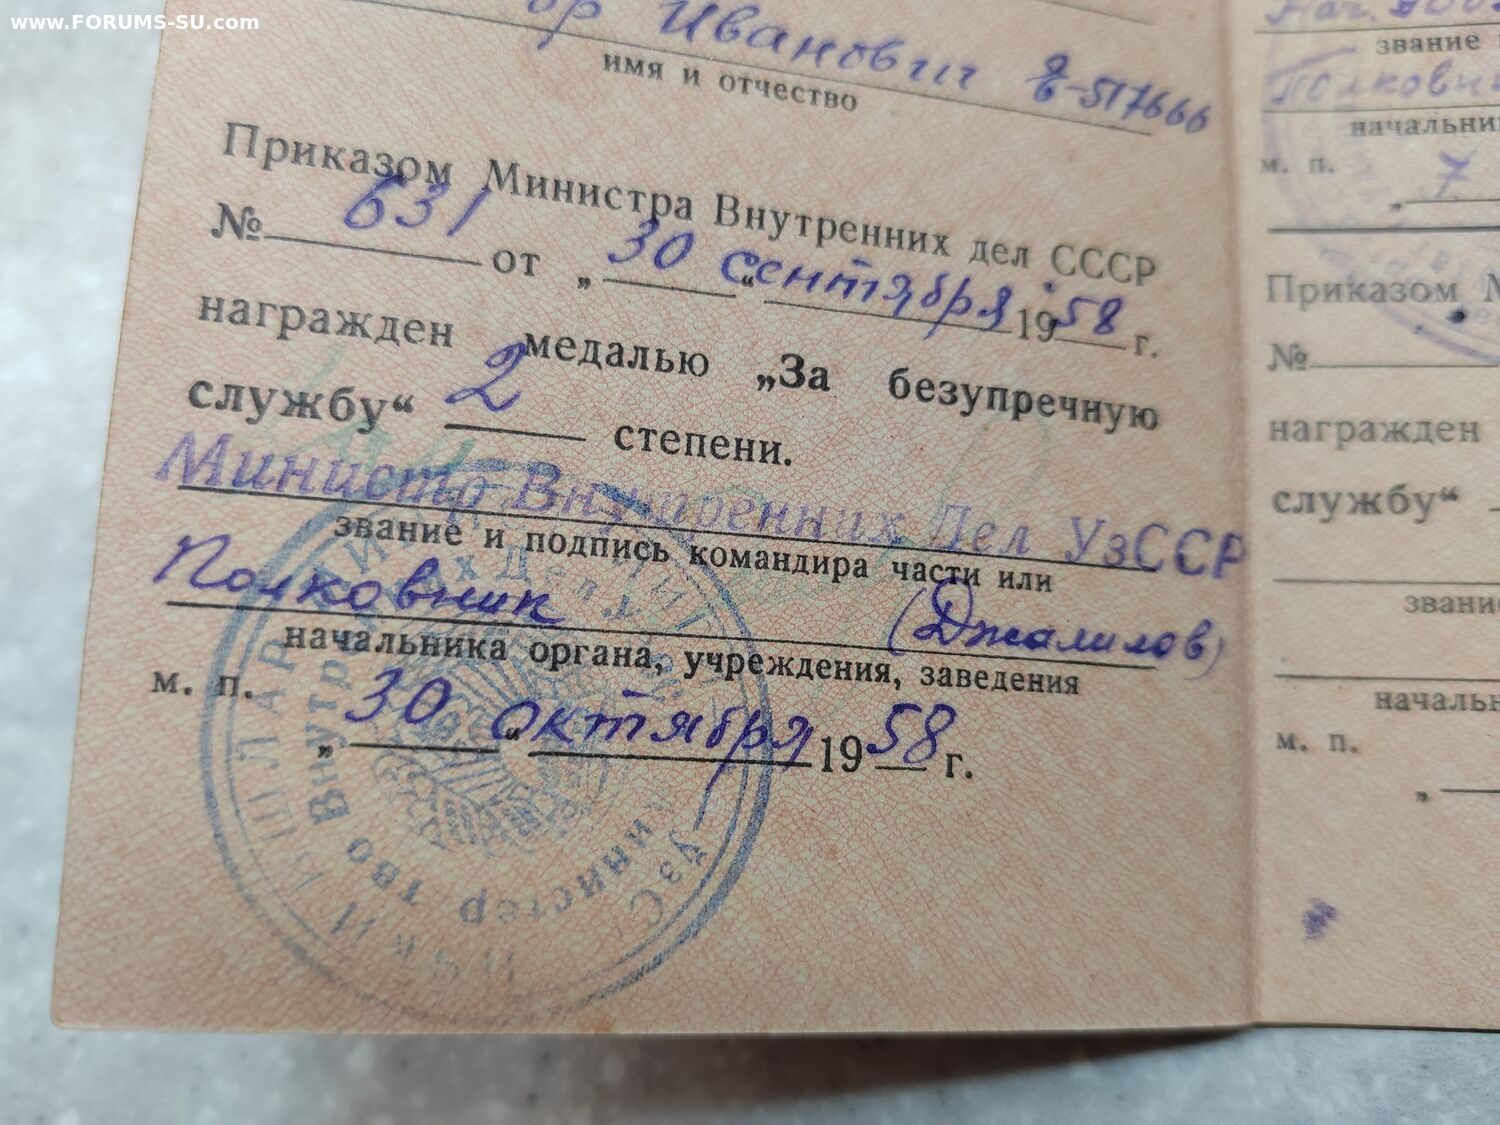 www.FORUMS-SU.com
Иванович
имя и отчество
Приказом Министра Внутренних дел СССР
№ 631 от „30“ сентября 1958 г.
награжден медалью „За безупречную
службу“ 2 степени.
Министр Внутренних Дел УзССР
звание и подпись командира части или
Полковник (Джалилов)
начальника органа, учреждения, заведения
м. п.
„30“ октября 1958 г.
Нач.
звание
начальни
м. п.
„7
Приказом М
№
награжден
службу“
звание
начальн
м. п.
„